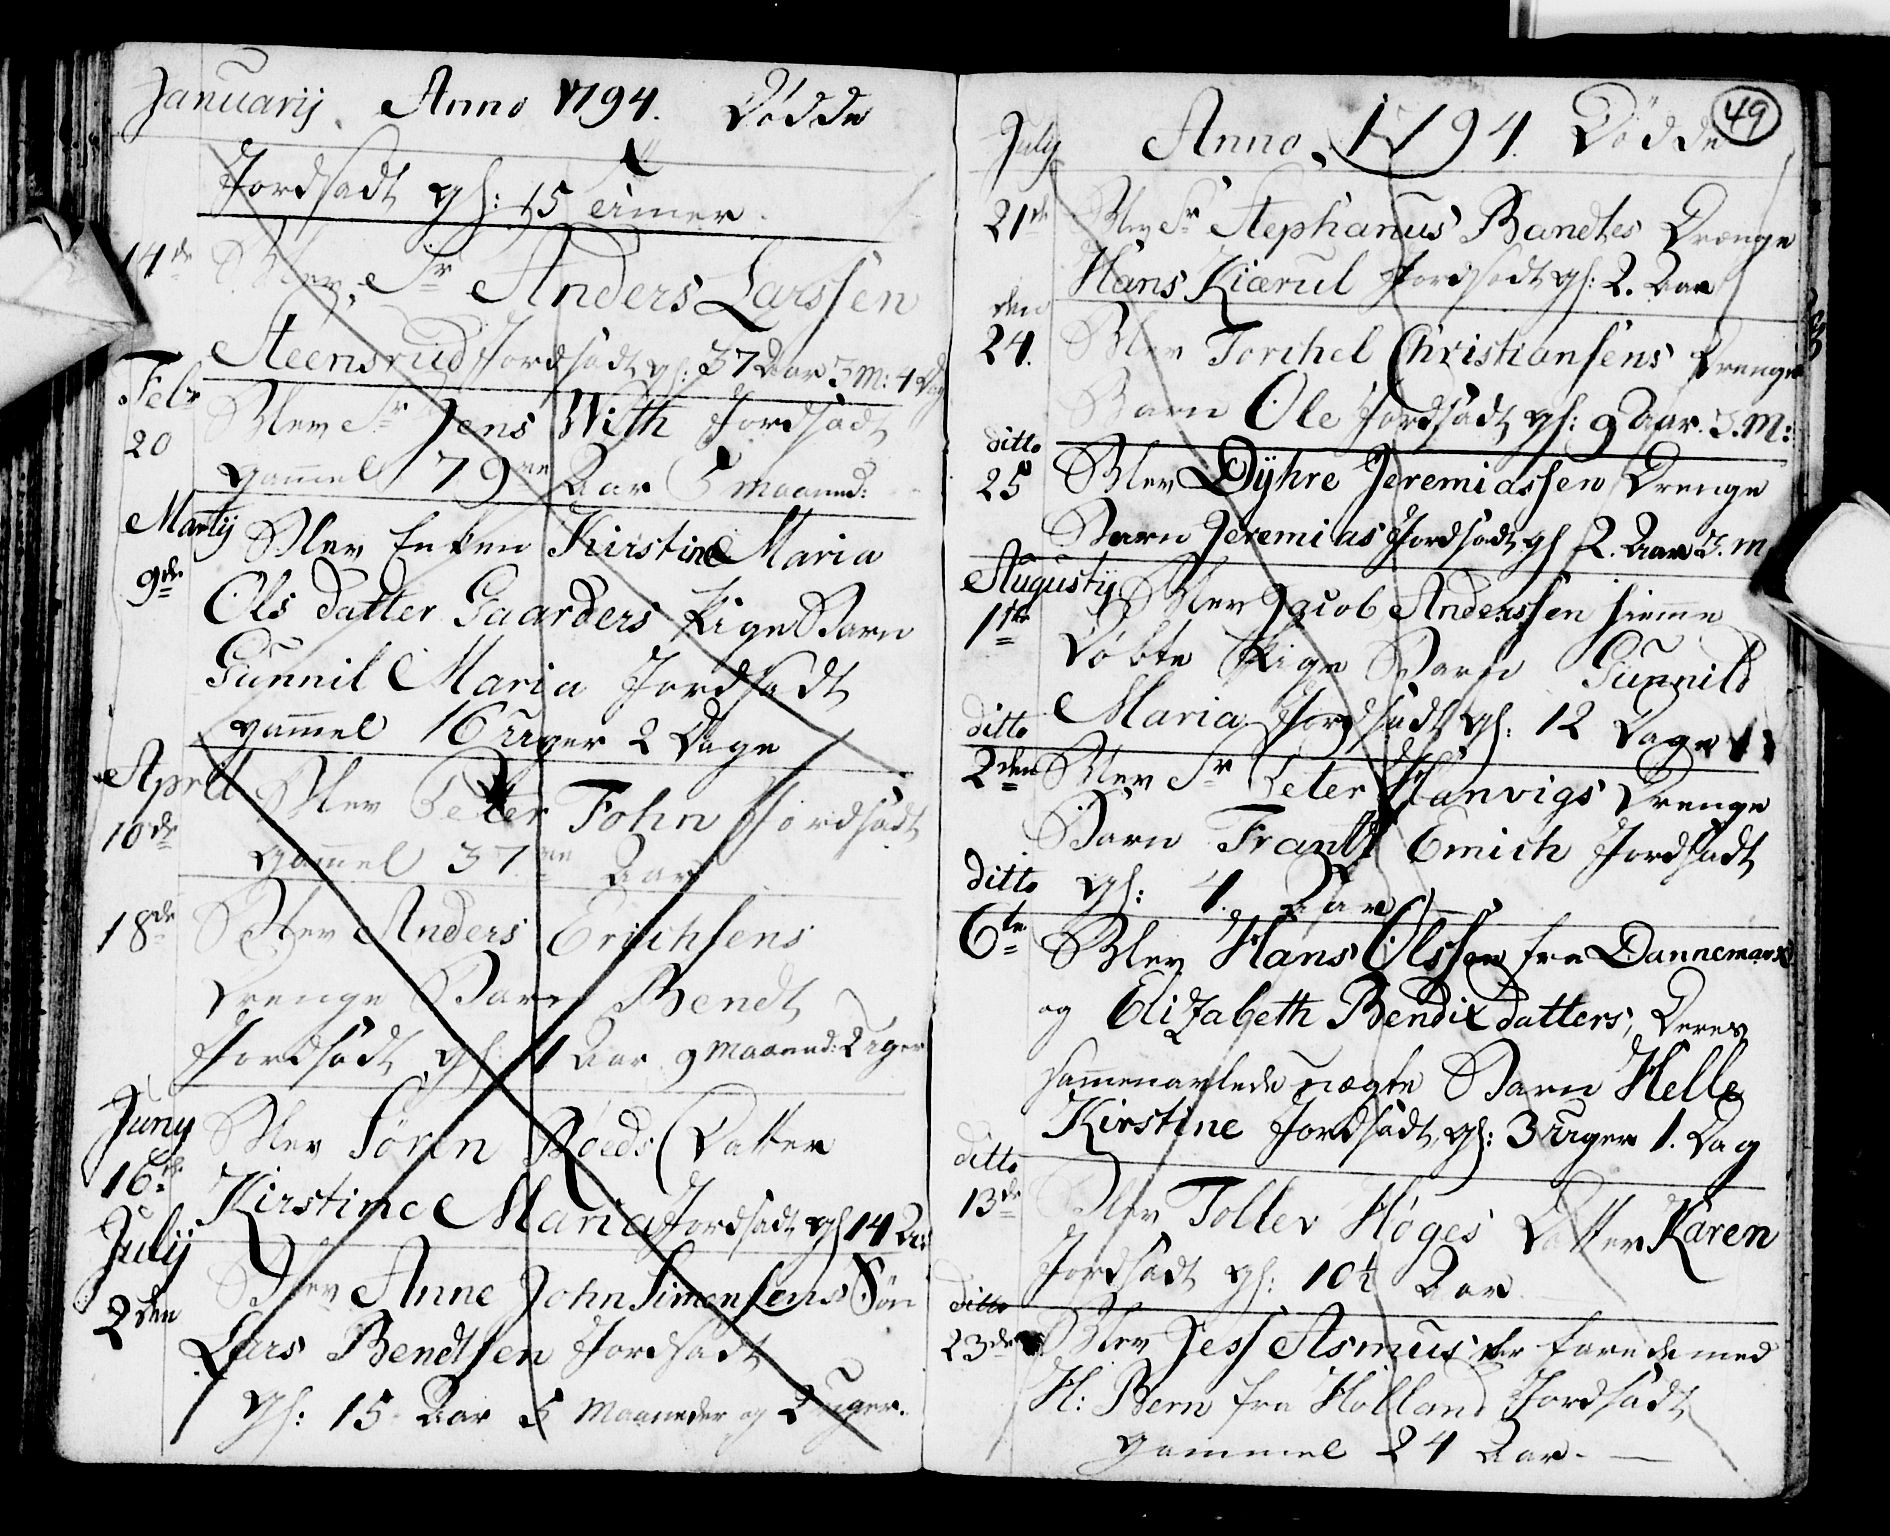 Januarij Anno 1794. Dödde
Jordsadt gl: 15 Timer.
14de Blev Sr Anders Larssen
Steensrud Jordsadt gl: 37 Aar 3 M: 4 Dag
Febr Blev Sr Jens With Jordsadt
20 gammel 79ve Aar 5 maaned:
Martij Blev Enken Kirstine Maria
9de Ols datter Gaarders Pige Barn
Gunnil Maria Jordsadt
gammel 16 Uger 2 Dage
April Blev Peter Fohn Jordsadt
10de gammel 37 Aar
18de Blev Anders Erichsens
Drenge Barn Bendt
Jordsadt gl: 1 Aar 9 Maaned: 2 Uger
Juny Blev Sören Roeds Datter
16te Kirstine Maria Jordsadt gl 14 Aar
Julij Blev Anne John Simonsens Sön
2den Lars Bendtsen Jordsadt
gl: 15 Aar 5 Maaneder og 2 Uger.
July Anno 1794. Dödde 49
21de Blev Sr Stephanus Bandtes Drenge
Hans Kiærul Jordsadt gl: 2. Aar
den
24. Blev Torchel Christiansens Drenge
Barn Ole Jordsadt gl: 9 Aar. 3. M:
ditto
25 Blev Dyhre Jeremiassen Drenge
Barn Jeremias Jordsadt gl 2. Aar 3. M
Augustij Blev Jacob Anderssen hiemme
1ste Döbte Pige Barn Gunnild
Maria Jordsadt gl: 12 Dage
ditto
2den Blev Sr Peter Hanvigs Drenge
Barn Frantz Emich Jordsadt
ditto gl: 4. Aar
6te Blev Hans Olssen fra Dannemark
og Elizabeth Bendix datters, Deres
sammenavlede uægte Barn Helle
Kirstine Jordsadt, gl: 3 Uger 1. Dag
ditto
13de Blev Tollev Höges Datter Karen
Jordsadt gl: 10½ Aar
ditto
23de Blev Jess Asmus er farede med
H: Bern fra Holland Jordsadt
gammel 24 Aar.